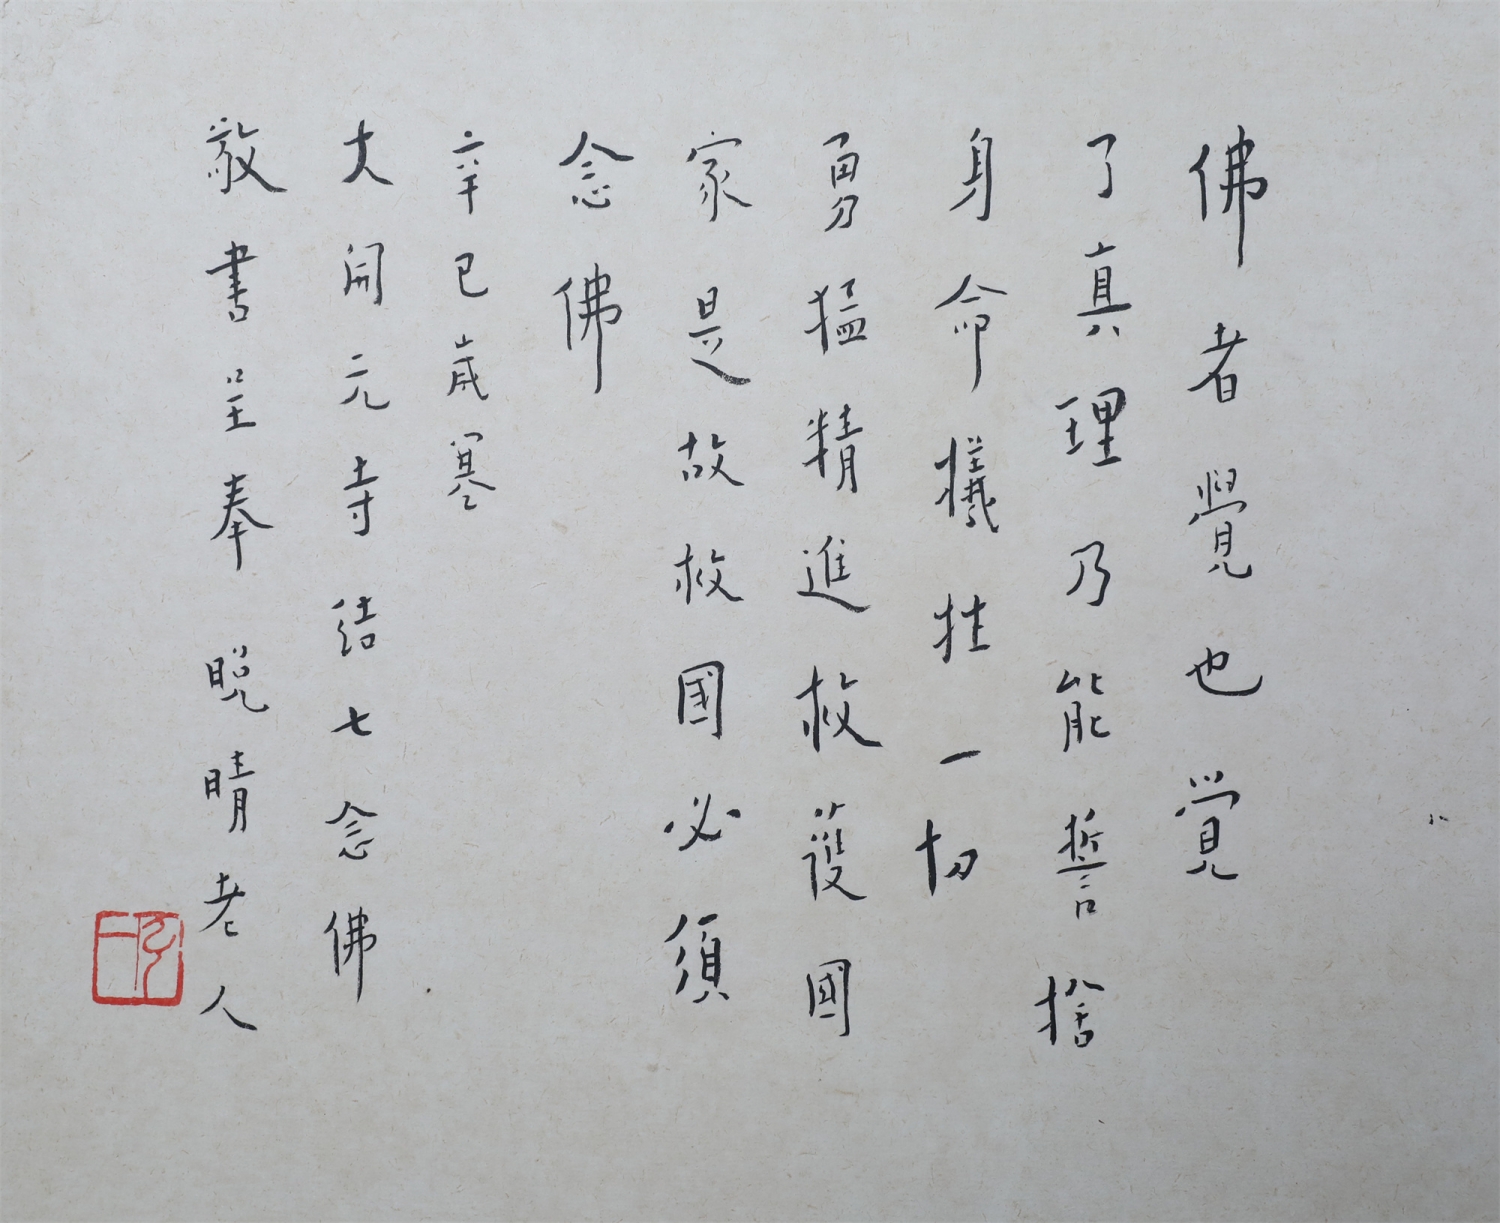 佛者覺也覺
了真理乃能誓捨
身命犧牲一切
勇猛精進救護國
家是故救國必須
念佛
辛巳歲寒
大開元寺結七念佛
敬書呈奉晚晴老人